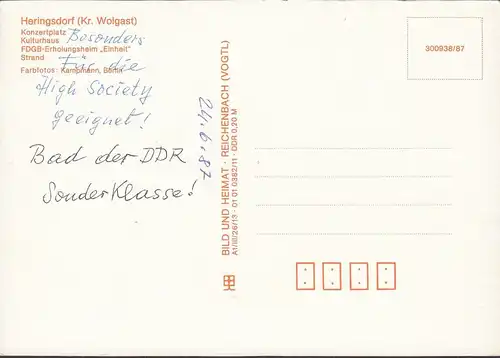 Heringsdorf (Kr. Wolgast)
Konzertplatz
Kulturhaus
FDGB-Erholungsheim „Einheit"
Strand
Farbfotos: Kampmann, Berlin
Besonders
Für die
High Society
geeignet!
Bad der DDR
SonderKlasse!
24.6.87
BILD UND HEIMAT · REICHENBACH (VOGTL)
A1/III/26/13 · 01 01 0382/11 · DDR 0,20 M
300938/87